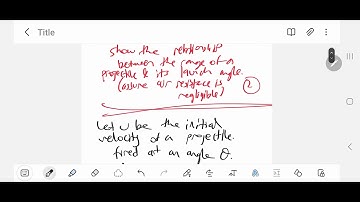 Title
show the relationship
between the range of a
projectile & its launch angle.
(assume air resistance is
negligible)
2
Let u be the initial
velocity of a projectile
fired at an angle θ.